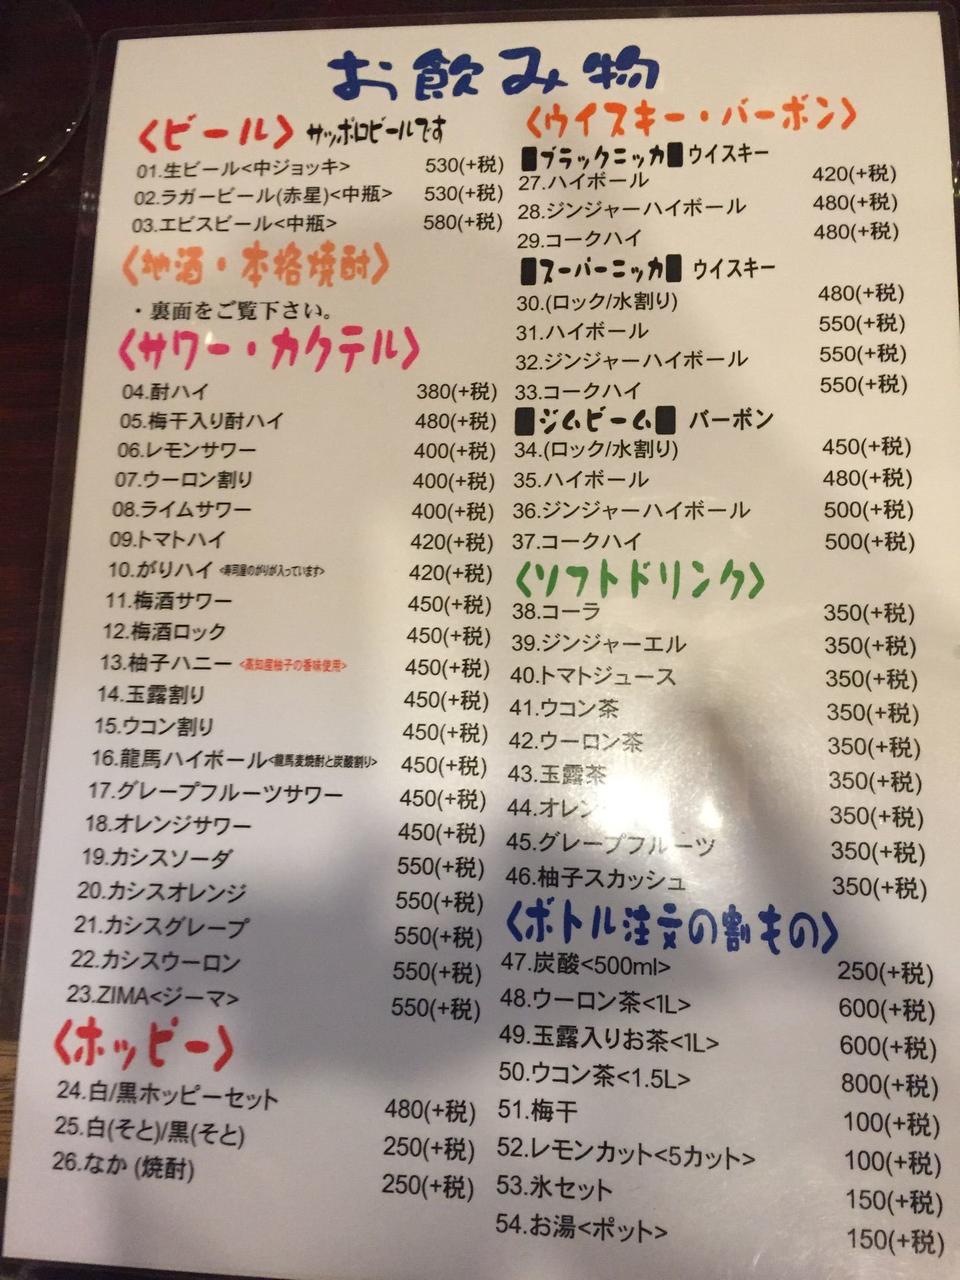 お飲み物
<ビール> サッポロビールです
01.生ビール<中ジョッキ> 530(+税)
02.ラガービール(赤星)<中瓶> 530(+税)
03.エビスビール<中瓶> 580(+税)
<地酒・本格焼酎>
・裏面をご覧下さい。
<サワー・カクテル>
04.酎ハイ 380(+税)
05.梅干入り酎ハイ 480(+税)
06.レモンサワー 400(+税)
07.ウーロン割り 400(+税)
08.ライムサワー 400(+税)
09.トマトハイ 420(+税)
10.がりハイ<寿司屋のがりが入っています> 420(+税)
11.梅酒サワー 450(+税)
12.梅酒ロック 450(+税)
13.柚子ハニー<高知産柚子の香味使用> 450(+税)
14.玉露割り 450(+税)
15.ウコン割り 450(+税)
16.龍馬ハイボール<龍馬麦焼酎と炭酸割り> 450(+税)
17.グレープフルーツサワー 450(+税)
18.オレンジサワー 450(+税)
19.カシスソーダ 550(+税)
20.カシスオレンジ 550(+税)
21.カシスグレープ 550(+税)
22.カシスウーロン 550(+税)
23.ZIMA<ジーマ> 550(+税)
<ホッピー>
24.白/黒ホッピーセット 480(+税)
25.白(そと)/黒(そと) 250(+税)
26.なか(焼酎) 250(+税)
<ウイスキー・バーボン>
■ブラックニッカ■ウイスキー
27.ハイボール 420(+税)
28.ジンジャーハイボール 480(+税)
29.コークハイ 480(+税)
■スーパーニッカ■ ウイスキー
30.(ロック/水割り) 480(+税)
31.ハイボール 550(+税)
32.ジンジャーハイボール 550(+税)
33.コークハイ 550(+税)
■ジムビーム■ バーボン
34.(ロック/水割り) 450(+税)
35.ハイボール 480(+税)
36.ジンジャーハイボール 500(+税)
37.コークハイ 500(+税)
<ソフトドリンク>
38.コーラ 350(+税)
39.ジンジャーエル 350(+税)
40.トマトジュース 350(+税)
41.ウコン茶 350(+税)
42.ウーロン茶 350(+税)
43.玉露茶 350(+税)
44.オレン 350(+税)
45.グレープフルーツ 350(+税)
46.柚子スカッシュ 350(+税)
<ボトル注文の割もの>
47.炭酸<500ml> 250(+税)
48.ウーロン茶<1L> 600(+税)
49.玉露入りお茶<1L> 600(+税)
50.ウコン茶<1.5L> 800(+税)
51.梅干 100(+税)
52.レモンカット<5カット> 100(+税)
53.氷セット 150(+税)
54.お湯<ポット> 150(+税)